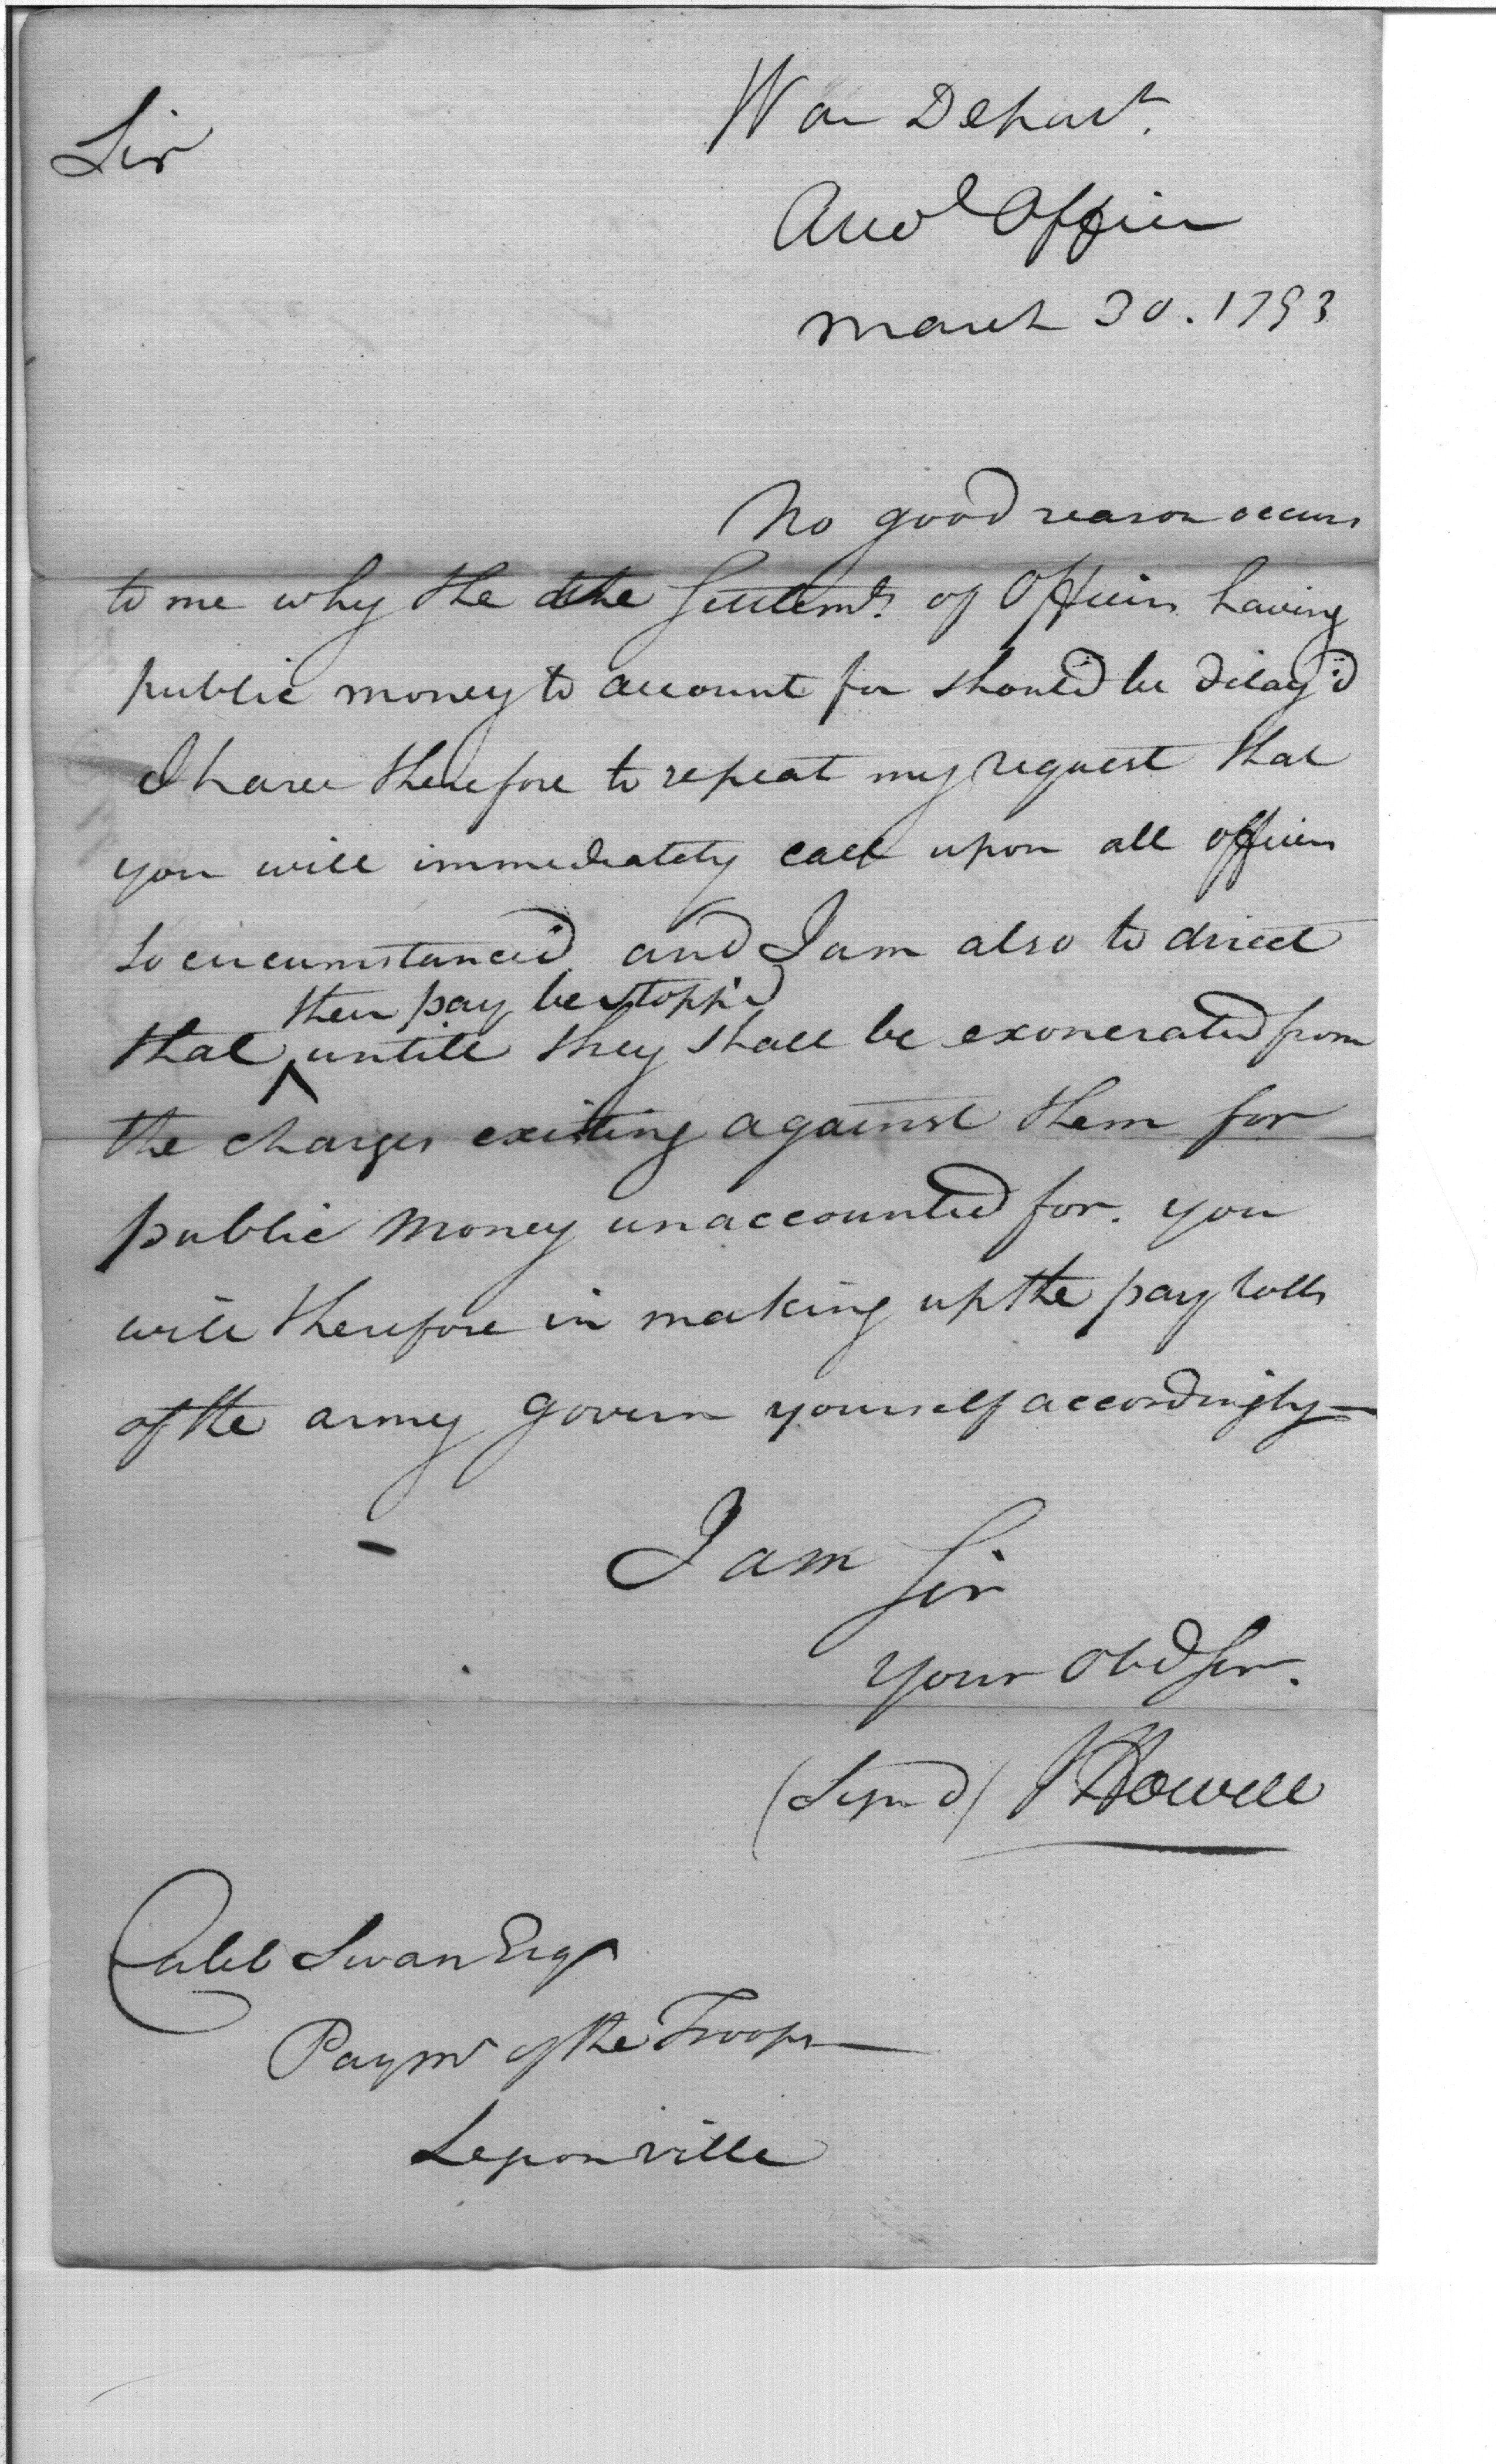 Sir
War Depart.
Acco.t Office
March 30. 1793
No good reason occurs
to me why the the Settlemts. of Officers having
public money to account for should be delay'd
I have therefore to repeat my request that
you will immediately call upon all officers
so circumstanced, and I am also to direct
their pay be stopp'd
that ^ untill they shall be exonerated from
the charges existing against them for
public money unaccounted for. you
will therefore in making up the pay rolls
of the army govern yourself accordingly—
I am Sir
your Obd Ser.
(Sign'd) J Howell
Caleb Swan Esqr
Paymr of the Troops
Legionville